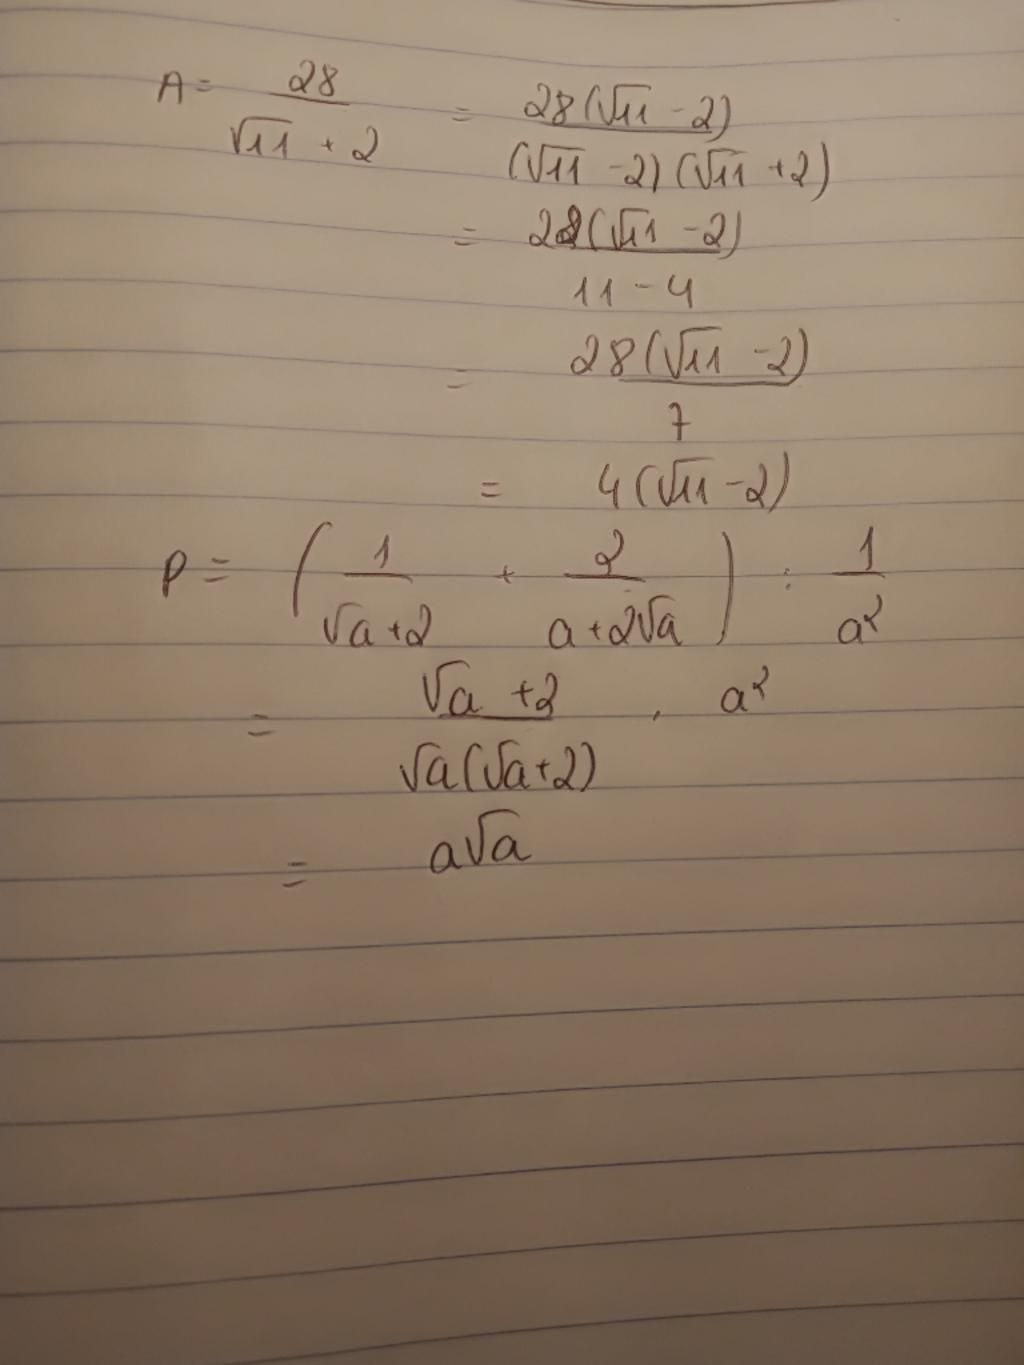 A = 28/(√11 + 2) = 28(√11 - 2)/((√11 - 2)(√11 + 2))
= 28(√11 - 2)/(11 - 4)
= 28(√11 - 2)/7
= 4(√11 - 2)
P = (1/(√a + 2) + 2/(a + 2√a)) : 1/a²
= (√a + 2)/(√a(√a + 2)) . a²
= a√a